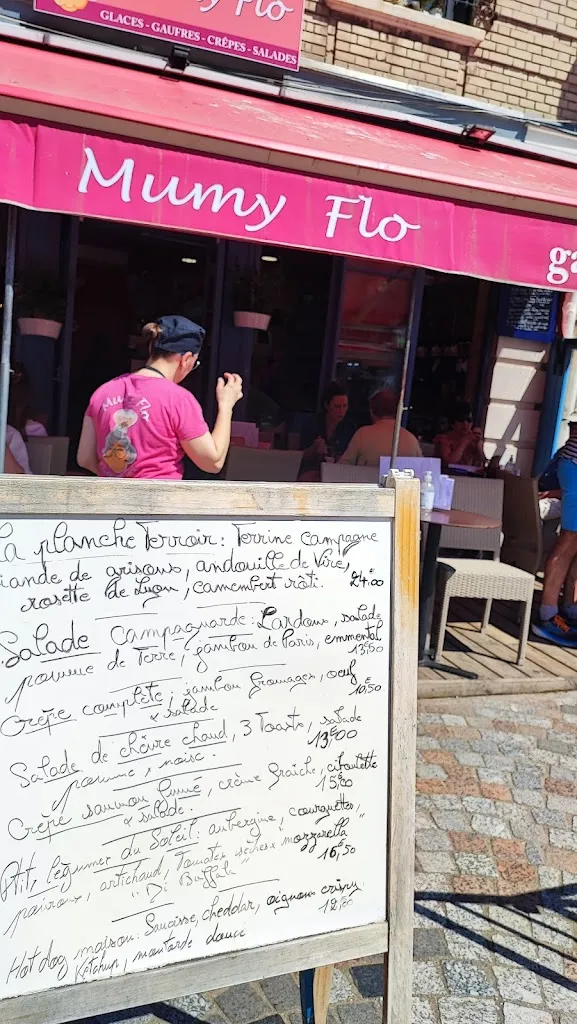 Mumy Flo
GLACES - GAUFRES - CRÊPES - SALADES
Mumy Flo
Mumy Flo
la planche Terroir : Terrine campagne
viande de grisons, andouille de Vire,
rosette de Lyon, camembert rôti. 24.00
Salade Campagnarde : Lardons, salade
pomme de Terre, jambon de Paris, emmental
13,50
Crêpe complète : jambon fromages, oeuf
& salade 10,50
Salade de chèvre chaud, 3 Toasts, salade
pomme, noix. 13,00
Crêpe saumon fumé, crème fraiche, ciboulette
& salade. 15,00
légumes du Soleil : aubergine, courguttes,
poivrons, artichaud, Tomates séchées "mozzarella
Di Buffala" 16,50
Hot dog maison : Saucisse, cheddar, oignons crispy
Ketchup, moutarde douce 12,00